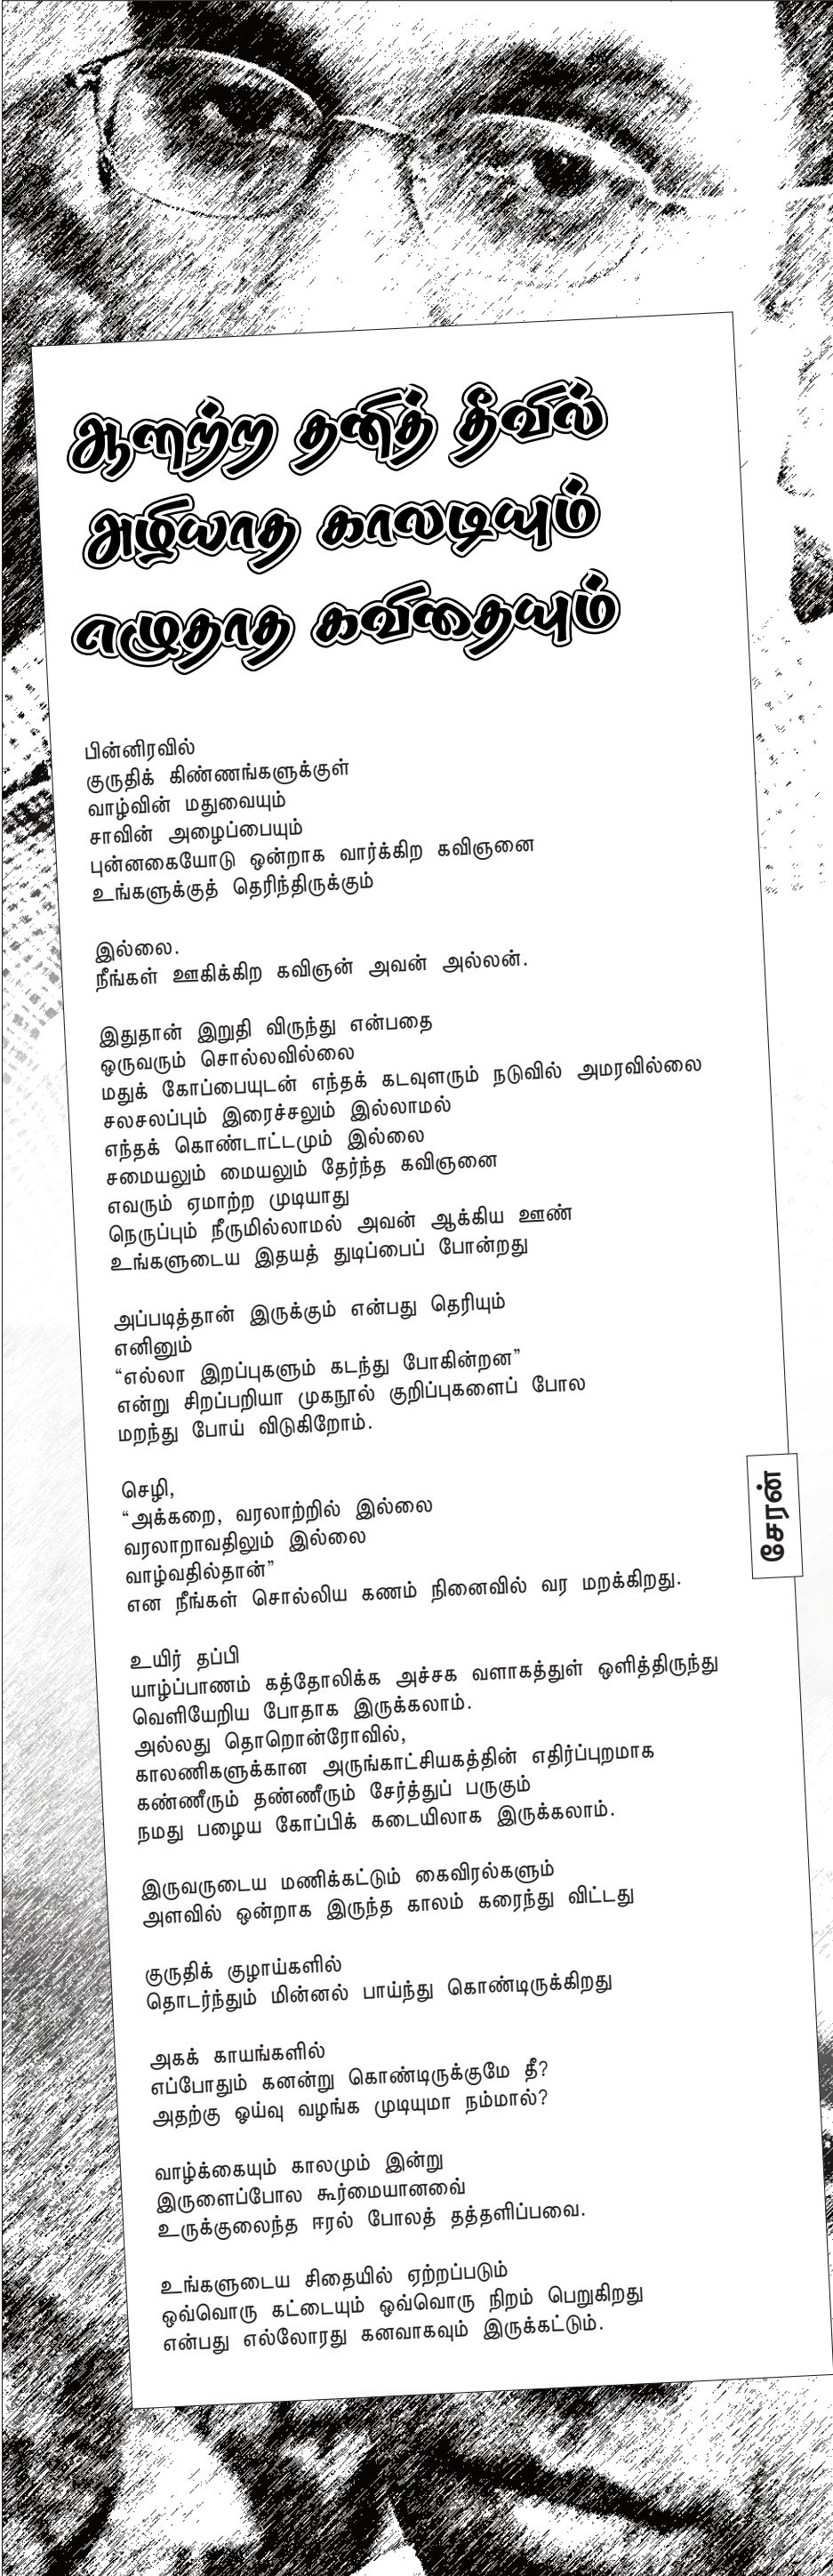 ஆளற்ற தனித் தீவில்
அழியாத காலடியும்
எழுதாத கவிதையும்
பின்னிரவில்
குருதிக் கிண்ணங்களுக்குள்
வாழ்வின் மதுவையும்
சாவின் அழைப்பையும்
புன்னகையோடு ஒன்றாக வார்க்கிற கவிஞனை
உங்களுக்குத் தெரிந்திருக்கும்
இல்லை.
நீங்கள் ஊகிக்கிற கவிஞன் அவன் அல்லன்.
இதுதான் இறுதி விருந்து என்பதை
ஒருவரும் சொல்லவில்லை
மதுக் கோப்பையுடன் எந்தக் கடவுளரும் நடுவில் அமரவில்லை
சலசலப்பும் இரைச்சலும் இல்லாமல்
எந்தக் கொண்டாட்டமும் இல்லை
சமையலும் மையலும் தேர்ந்த கவிஞனை
எவரும் ஏமாற்ற முடியாது
நெருப்பும் நீருமில்லாமல் அவன் ஆக்கிய ஊண்
உங்களுடைய இதயத் துடிப்பைப் போன்றது
அப்படித்தான் இருக்கும் என்பது தெரியும்
எனினும்
“எல்லா இறப்புகளும் கடந்து போகின்றன”
என்று சிறப்பறியா முகநூல் குறிப்புகளைப் போல
மறந்து போய் விடுகிறோம்.
செழி,
“அக்கறை, வரலாற்றில் இல்லை
வரலாறாவதிலும் இல்லை
வாழ்வதில்தான்”
என நீங்கள் சொல்லிய கணம் நினைவில் வர மறக்கிறது.
சேரன்
உயிர் தப்பி
யாழ்ப்பாணம் கத்தோலிக்க அச்சக வளாகத்துள் ஒளித்திருந்து
வெளியேறிய போதாக இருக்கலாம்.
அல்லது தொறொன்ரோவில்,
காலணிகளுக்கான அருங்காட்சியகத்தின் எதிர்ப்புறமாக
கண்ணீரும் தண்ணீரும் சேர்த்துப் பருகும்
நமது பழைய கோப்பிக் கடையிலாக இருக்கலாம்.
இருவருடைய மணிக்கட்டும் கைவிரல்களும்
அளவில் ஒன்றாக இருந்த காலம் கரைந்து விட்டது
குருதிக் குழாய்களில்
தொடர்ந்தும் மின்னல் பாய்ந்து கொண்டிருக்கிறது
அகக் காயங்களில்
எப்போதும் கனன்று கொண்டிருக்குமே தீ?
அதற்கு ஒய்வு வழங்க முடியுமா நம்மால்?
வாழ்க்கையும் காலமும் இன்று
இருளைப்போல கூர்மையானவை்
உருக்குலைந்த ஈரல் போலத் தத்தளிப்பவை.
உங்களுடைய சிதையில் ஏற்றப்படும்
ஒவ்வொரு கட்டையும் ஒவ்வொரு நிறம் பெறுகிறது
என்பது எல்லோரது கனவாகவும் இருக்கட்டும்.